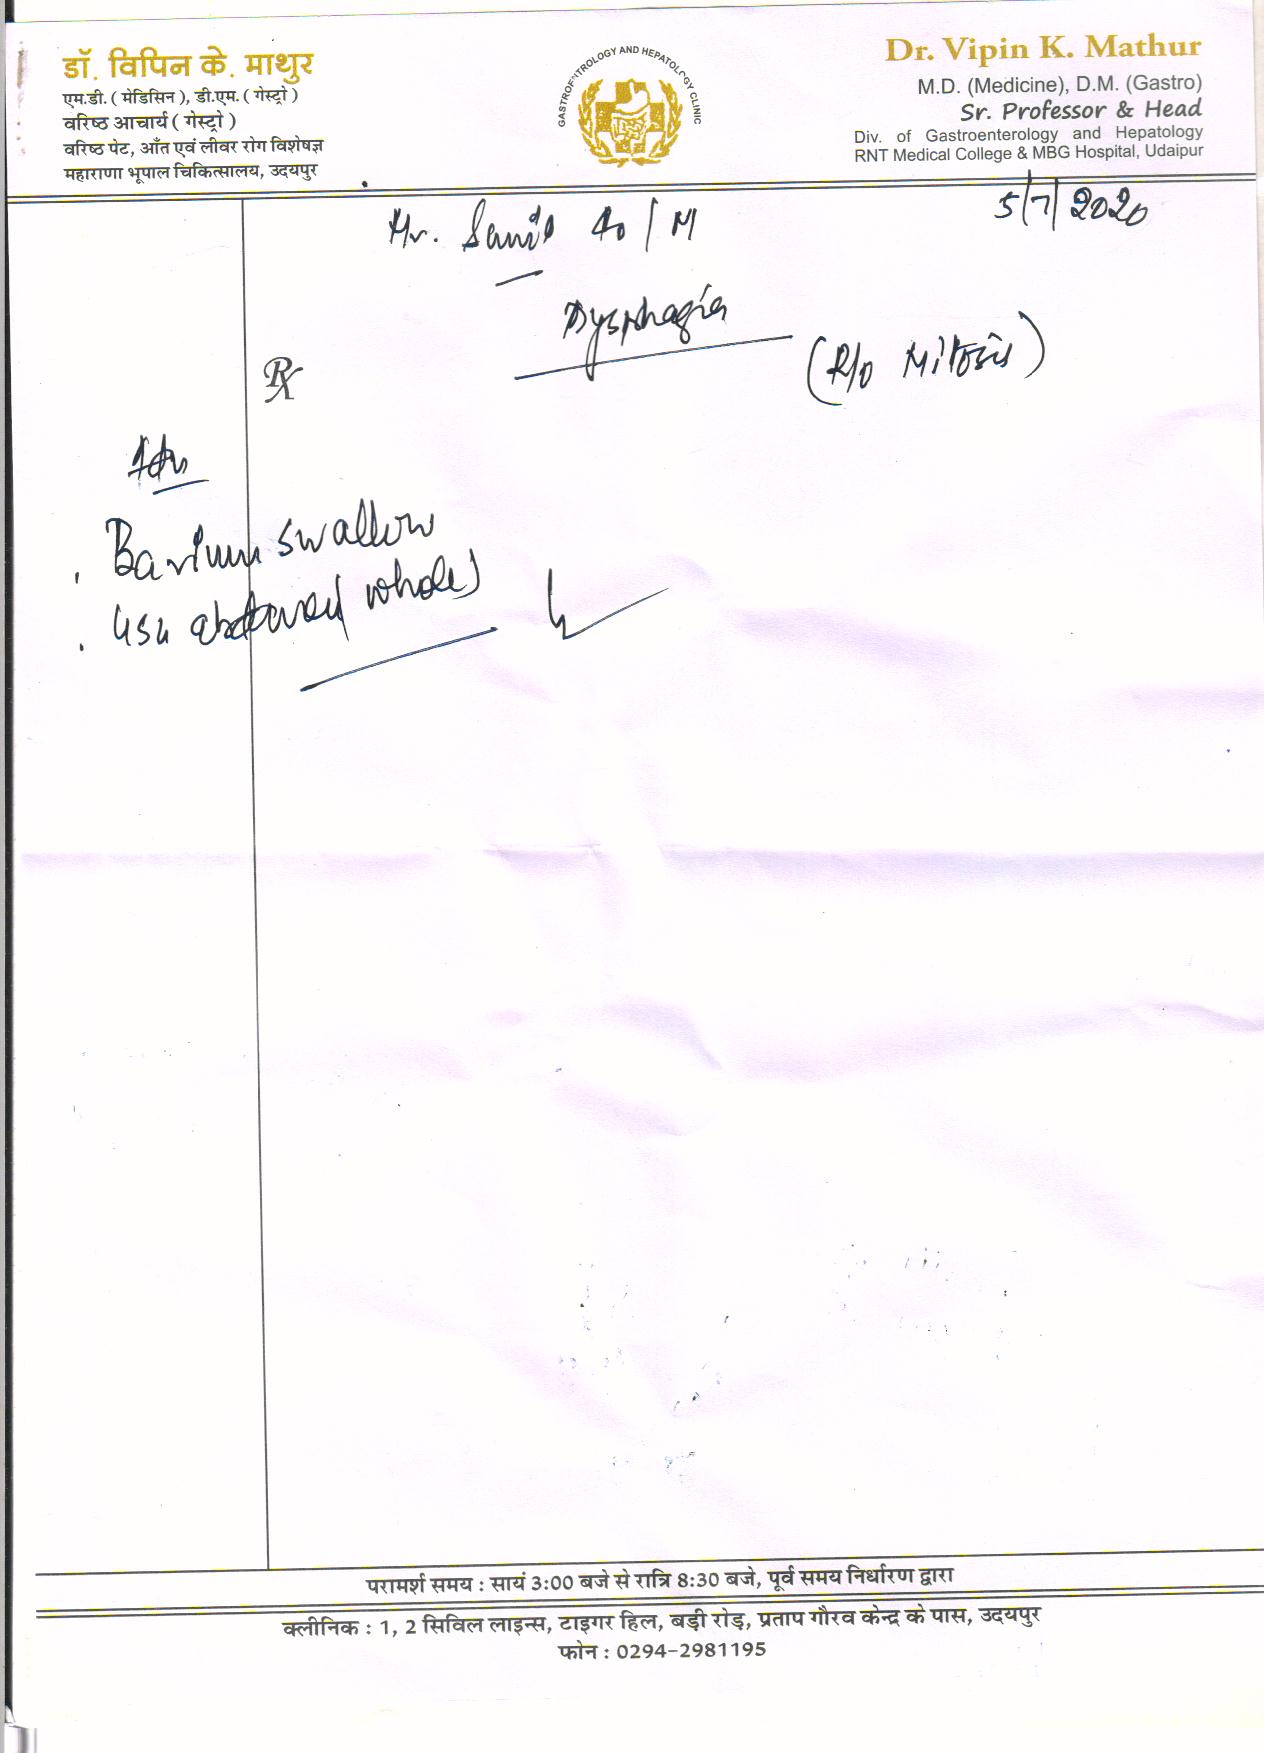 डॉ. विपिन के. माथुर
एम.डी. ( मेडिसिन ), डी.एम. ( गेस्ट्रो )
वरिष्ठ आचार्य ( गेस्ट्रो )
वरिष्ठ पेट, आँत एवं लीवर रोग विशेषज्ञ
महाराणा भूपाल चिकित्सालय, उदयपुर
GASTROENTROLOGY AND HEPATOLOGY CLINIC
Dr. Vipin K. Mathur
M.D. (Medicine), D.M. (Gastro)
Sr. Professor & Head
Div. of Gastroenterology and Hepatology
RNT Medical College & MBG Hospital, Udaipur
5/7/2020
Mr. 40/M
Dysphagia
(R/o Mitosis)
Rx
Adv
. Barium swallow
. USG abdomen (whole)
परामर्श समय : सायं 3:00 बजे से रात्रि 8:30 बजे, पूर्व समय निर्धारण द्वारा
क्लीनिक : 1, 2 सिविल लाइन्स, टाइगर हिल, बड़ी रोड़, प्रताप गौरव केन्द्र के पास, उदयपुर
फोन : 0294-2981195